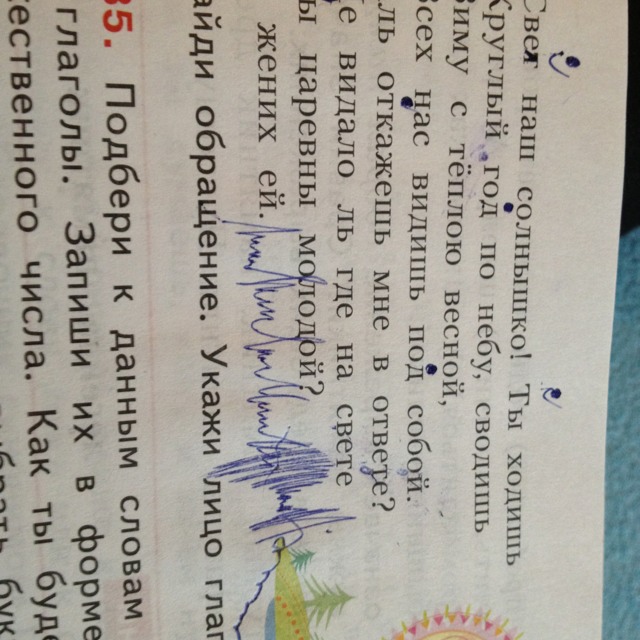 Свет наш солнышко! Ты ходишь
Круглый год по небу, сводишь
Зиму с тёплою весной,
Всех нас видишь под собой.
ль откажешь мне в ответе?
Не видало ль где на свете
ы царевны молодой?
жених ей.
айди обращение. Укажи лицо глаг
35. Подбери к данным словам
глаголы. Запиши их в форме
ественного числа. Как ты буде